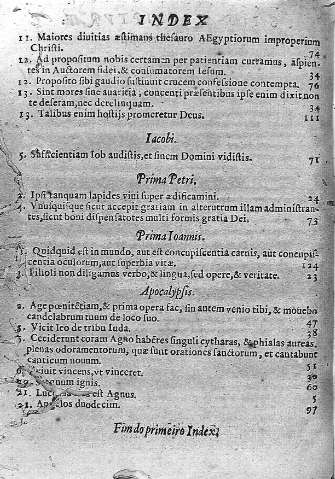 INDEX
11. Maiores divitias æstimans thesauro AEgyptiorum improperium
Christi. 74
12. Ad propositum nobis certamen per patientiam curramus, aspien-
tes in Auctorem fidei, & consumatorem Iesum. 34
12. Proposito sibi gaudio sustinuit crucem confessione contempta. 76
13. Sint mores sine avaritia, contenti præsentibus ipse enim dixit non
te deseram, nec derelinquam. 34
13. Talibus enim hostijs promeretur Deus. 111
Iacobi.
5. Sufficientiam Iob audistis, et finem Domini vidistis. 71
Prima Petri.
2. Ipsi tanquam lapides vivi super ædificamini. 24
4. Vnusquisque sicut accepit gratiam in alterutrum illam administran-
tes, sicut boni dispensatores multi formis gratiæ Dei. 73
Prima Ioannis.
Quidquid est in mundo, aut est concupiscentia carnis, aut concupis-
centia oculorum, aut superbia vitæ. 124
3. Filioli non diligamus verbo, & lingua, sed opere, & veritate. 23
Apocalypsis.
2. Age pœnitentiam, & prima opera fac, sin autem venio tibi, & movebo
candelabrum tuum de loco suo. 47
5. Vicit leo de tribu Iuda. 38
5. Ceciderunt coram Agno habéres singuli cytharas, & phialas aureas
plenas odoramentorum, quæ sunt orationes sanctorum, et cantabunt
canticum novum. 51
6. Exiuit vincens, vt vinceret. 30
ignis. 60
21. est Agnus. 5
21. Angelos duodecim. 97
Fim do primeiro Index;